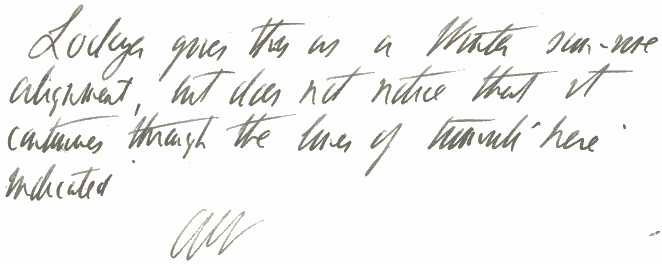 Lockyer gives this as a Winter sun-rise
alignment, but does not notice that it
continues through the lines of tumuli here
indicated